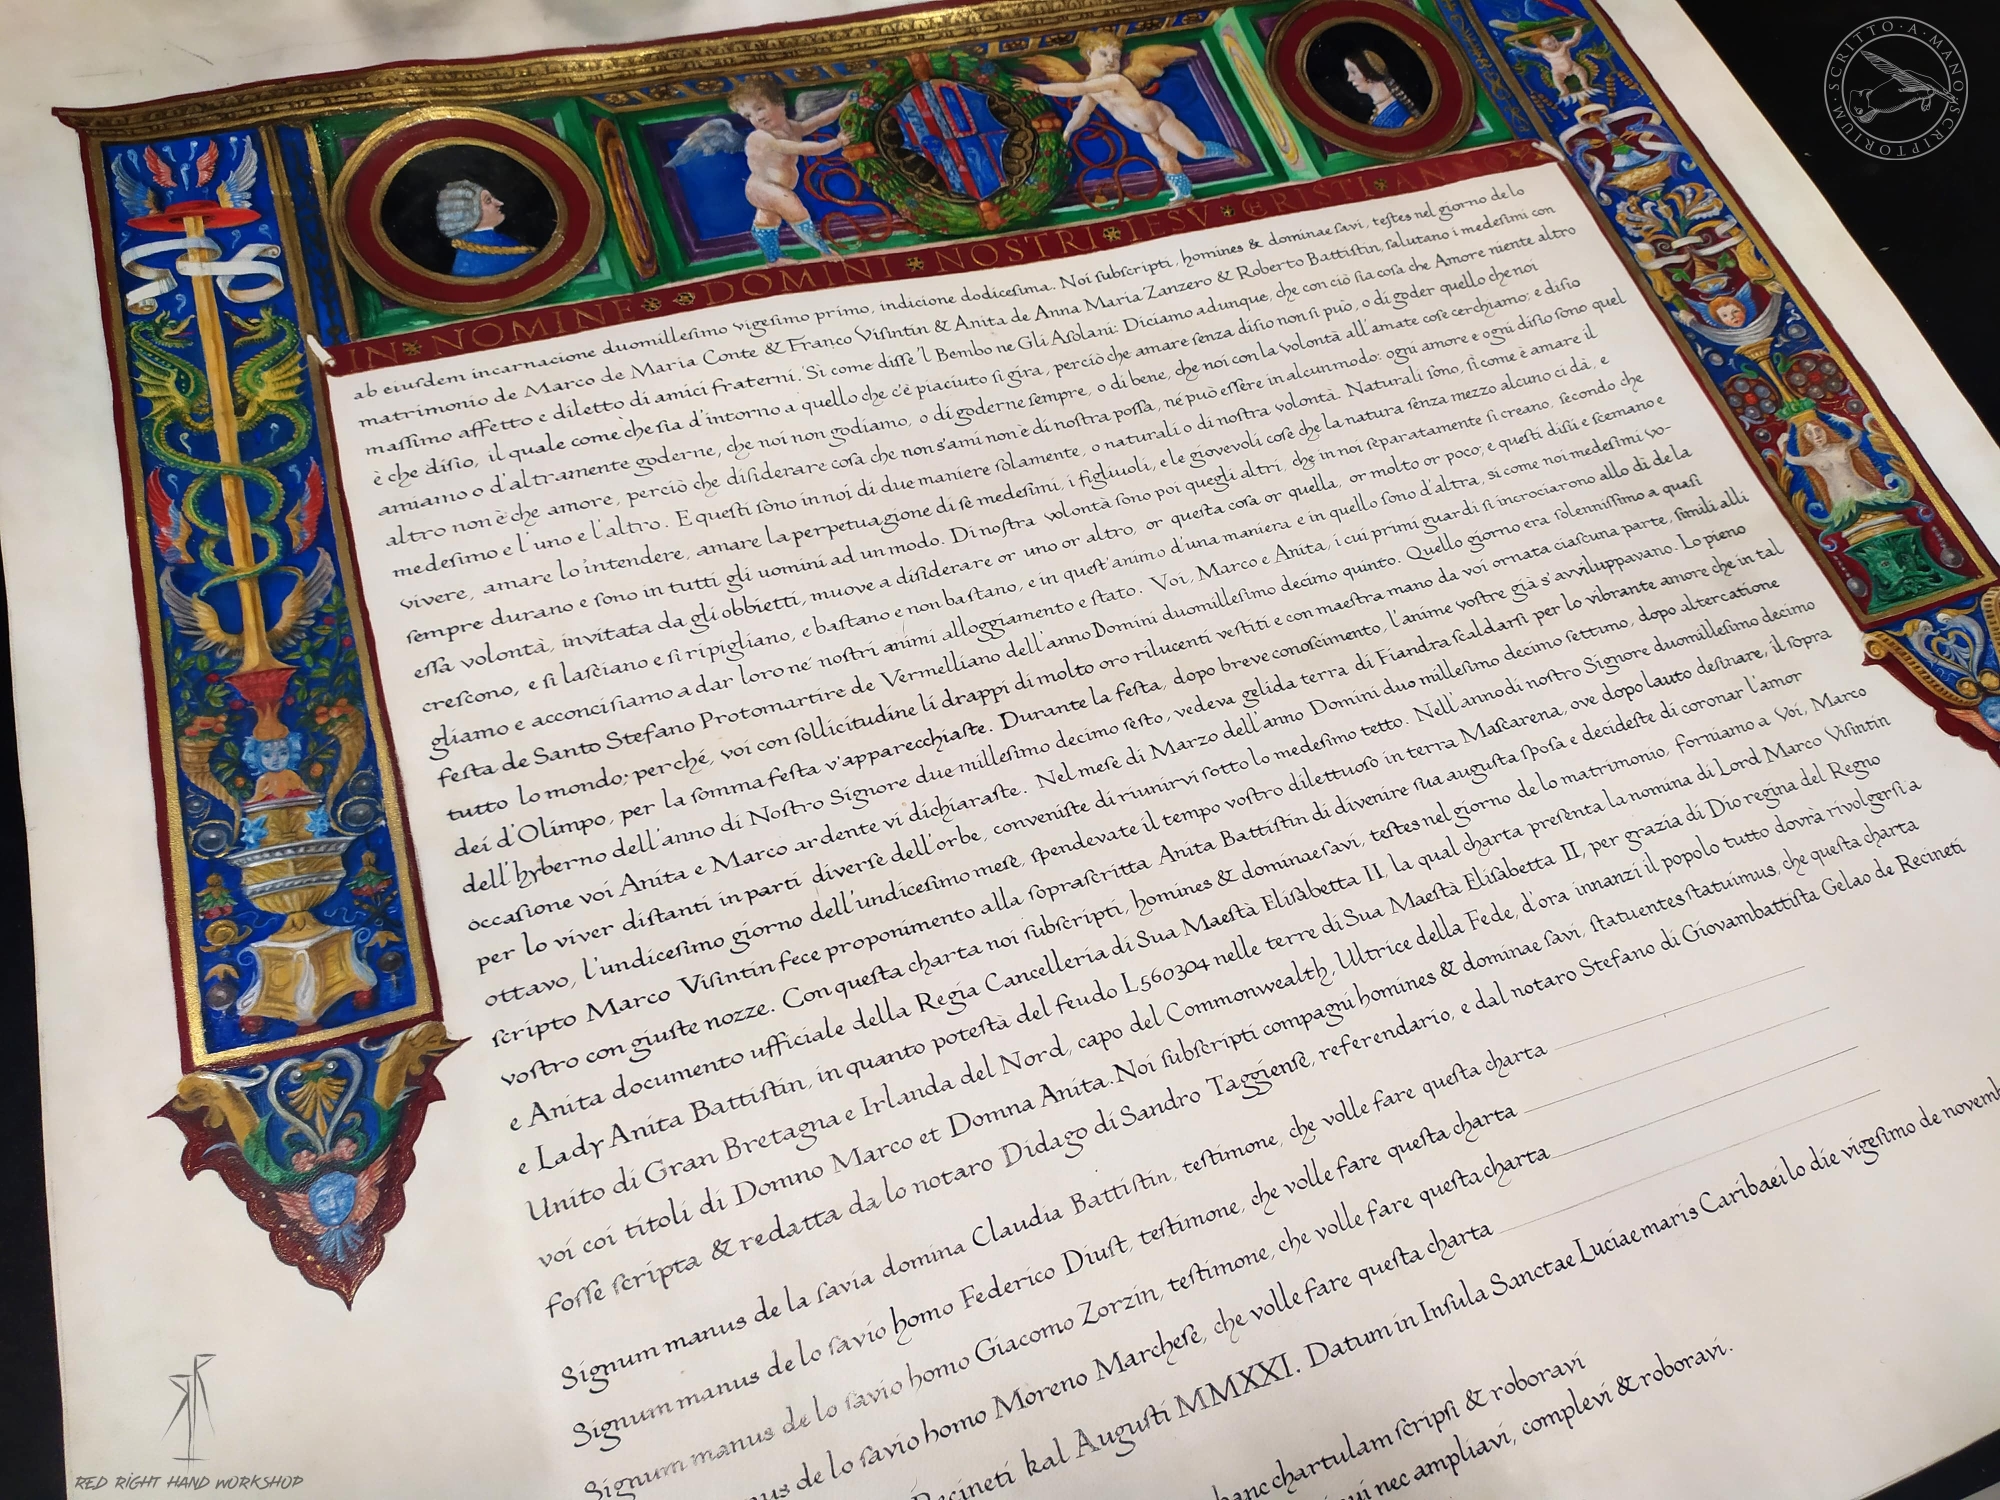 SCRIPTORIUM · SCRITTO · A · MANO
IN NOMINE DOMINI NOSTRI IESV CRISTI ANNO
ab eiuſdem incarnacione duomilleſimo vigeſimo primo, indicione dodiceſima. Noi ſubſcripti, homines & dominae ſavi, teſtes nel giorno de lo
matrimonio de Marco de Maria Conte & Franco Viſintin & Anita de Anna Maria Zanzero & Roberto Battiſtin, ſalutano i medeſimi con
maſſimo affetto e diletto di amici fraterni. Si come diſſe 'l Bembo ne Gli Aſolani: Diciamo adunque, che con ciò ſia coſa che Amore niente altro
è che diſio, il quale come che ſia d'intorno a quello che c'è piaciuto ſi gira, perciò che amare ſenza diſio non ſi può, o di goder quello che noi
amiamo o d'altramente goderne, che noi non godiamo, o di goderne ſempre, o di bene, che noi con la volontà all'amate coſe cerchiamo; e diſio
altro non è che amore, perciò che diſiderare coſa che non s'ami non è di noſtra poſſa, né può eſſere in alcun modo: ogni amore e ogni diſio ſono quel
medeſimo e l'uno e l'altro. E queſti ſono in noi di due maniere ſolamente, o naturali o di noſtra volontà. Naturali ſono, ſì come è amare il
vivere, amare lo intendere, amare la perpetuagione di ſe medeſimi, i figliuoli, e le giovevoli coſe che la natura ſenza mezzo alcuno ci dà, e
ſempre durano e ſono in tutti gli uomini ad un modo. Di noſtra volontà ſono poi quegli altri, che in noi ſeparatamente ſi creano, ſecondo che
eſſa volontà, invitata da gli obbietti, muove a diſiderare or uno or altro, or queſta coſa or quella, or molto or poco; e queſti diſii e ſcemano e
creſcono, e ſi laſciano e ſi ripigliano, e baſtano e non baſtano, e in queſt'animo d'una maniera e in quello ſono d'altra, si come noi medeſimi vo-
gliamo e acconci ſiamo a dar loro ne' noſtri animi alloggiamento e ſtato. Voi, Marco e Anita, i cui primi guardi ſi incrociarono allo dì de la
feſta de Santo Stefano Protomartire de Vermelliano dell'anno Domini duomilleſimo decimo quinto. Quello giorno era ſolenniſſimo a quaſi
tutto lo mondo; perché, voi con ſollicitudine li drappi di molto oro rilucenti veſtiti e con maeſtra mano da voi ornata ciaſcuna parte, ſimili alli
dei d'Olimpo, per la ſomma feſta v'apparecchiaſte. Durante la feſta, dopo breve conoſcimento, l'anime voſtre già s'avviluppavano. Lo pieno
dell'hyberno dell'anno di Noſtro Signore due milleſimo decimo ſeſto, vedeva gelida terra di Fiandra ſcaldarſi per lo vibrante amore che in tal
occaſione voi Anita e Marco ardente vi dichiaraſte. Nel meſe di Marzo dell'anno Domini duo milleſimo decimo ſettimo, dopo altercatione
per lo viver diſtanti in parti diverſe dell'orbe, conveniſte di riunirvi ſotto lo medeſimo tetto. Nell'anno di noſtro Signore duomilleſimo decimo
ottavo, l'undiceſimo giorno dell'undiceſimo meſe, ſpendevate il tempo voſtro dilettuoſo in terra Maſcarena, ove dopo lauto deſinare, il ſopra
ſcripto Marco Viſintin fece proponimento alla ſopraſcritta Anita Battiſtin di divenire ſua auguſta ſpoſa e decideſte di coronar l'amor
voſtro con giuſte nozze. Con queſta charta noi ſubſcripti, homines & dominae ſavi, teſtes nel giorno de lo matrimonio, forniamo a Voi, Marco
e Anita documento ufficiale della Regia Cancelleria di Sua Maeſtà Eliſabetta II, la qual charta preſenta la nomina di Lord Marco Viſintin
e Lady Anita Battiſtin, in quanto poteſtà del feudo L560304 nelle terre di Sua Maeſtà Eliſabetta II, per grazia di Dio regina del Regno
Unito di Gran Bretagna e Irlanda del Nord, capo del Commonwealth, Ultrice della Fede, d'ora innanzi il popolo tutto dovrà rivolgerſi a
voi coi titoli di Domno Marco et Domna Anita. Noi ſubſcripti compagni homines & dominae ſavi, ſtatuentes ſtatuimus, che queſta charta
foſſe ſcripta & redatta da lo notaro Didago di Sandro Taggienſe, referendario, e dal notaro Stefano di Giovambattiſta Gelao de Recineti
Signum manus de la ſavia domina Claudia Battiſtin, teſtimone, che volle fare queſta charta
Signum manus de lo ſavio homo Federico Diuſt, teſtimone, che volle fare queſta charta
Signum manus de lo ſavio homo Giacomo Zorzin, teſtimone, che volle fare queſta charta
manus de lo ſavio homo Moreno Marcheſe, che volle fare queſta charta
Recineti kal Auguſti MMXXI. Datum in Inſula Sanctae Luciae maris Caribaei lo die vigeſimo de novemb
hanc chartulam ſcripſi & roboravi
nec ampliavi, complevi & roboravi.
RED RIGHT HAND WORKSHOP